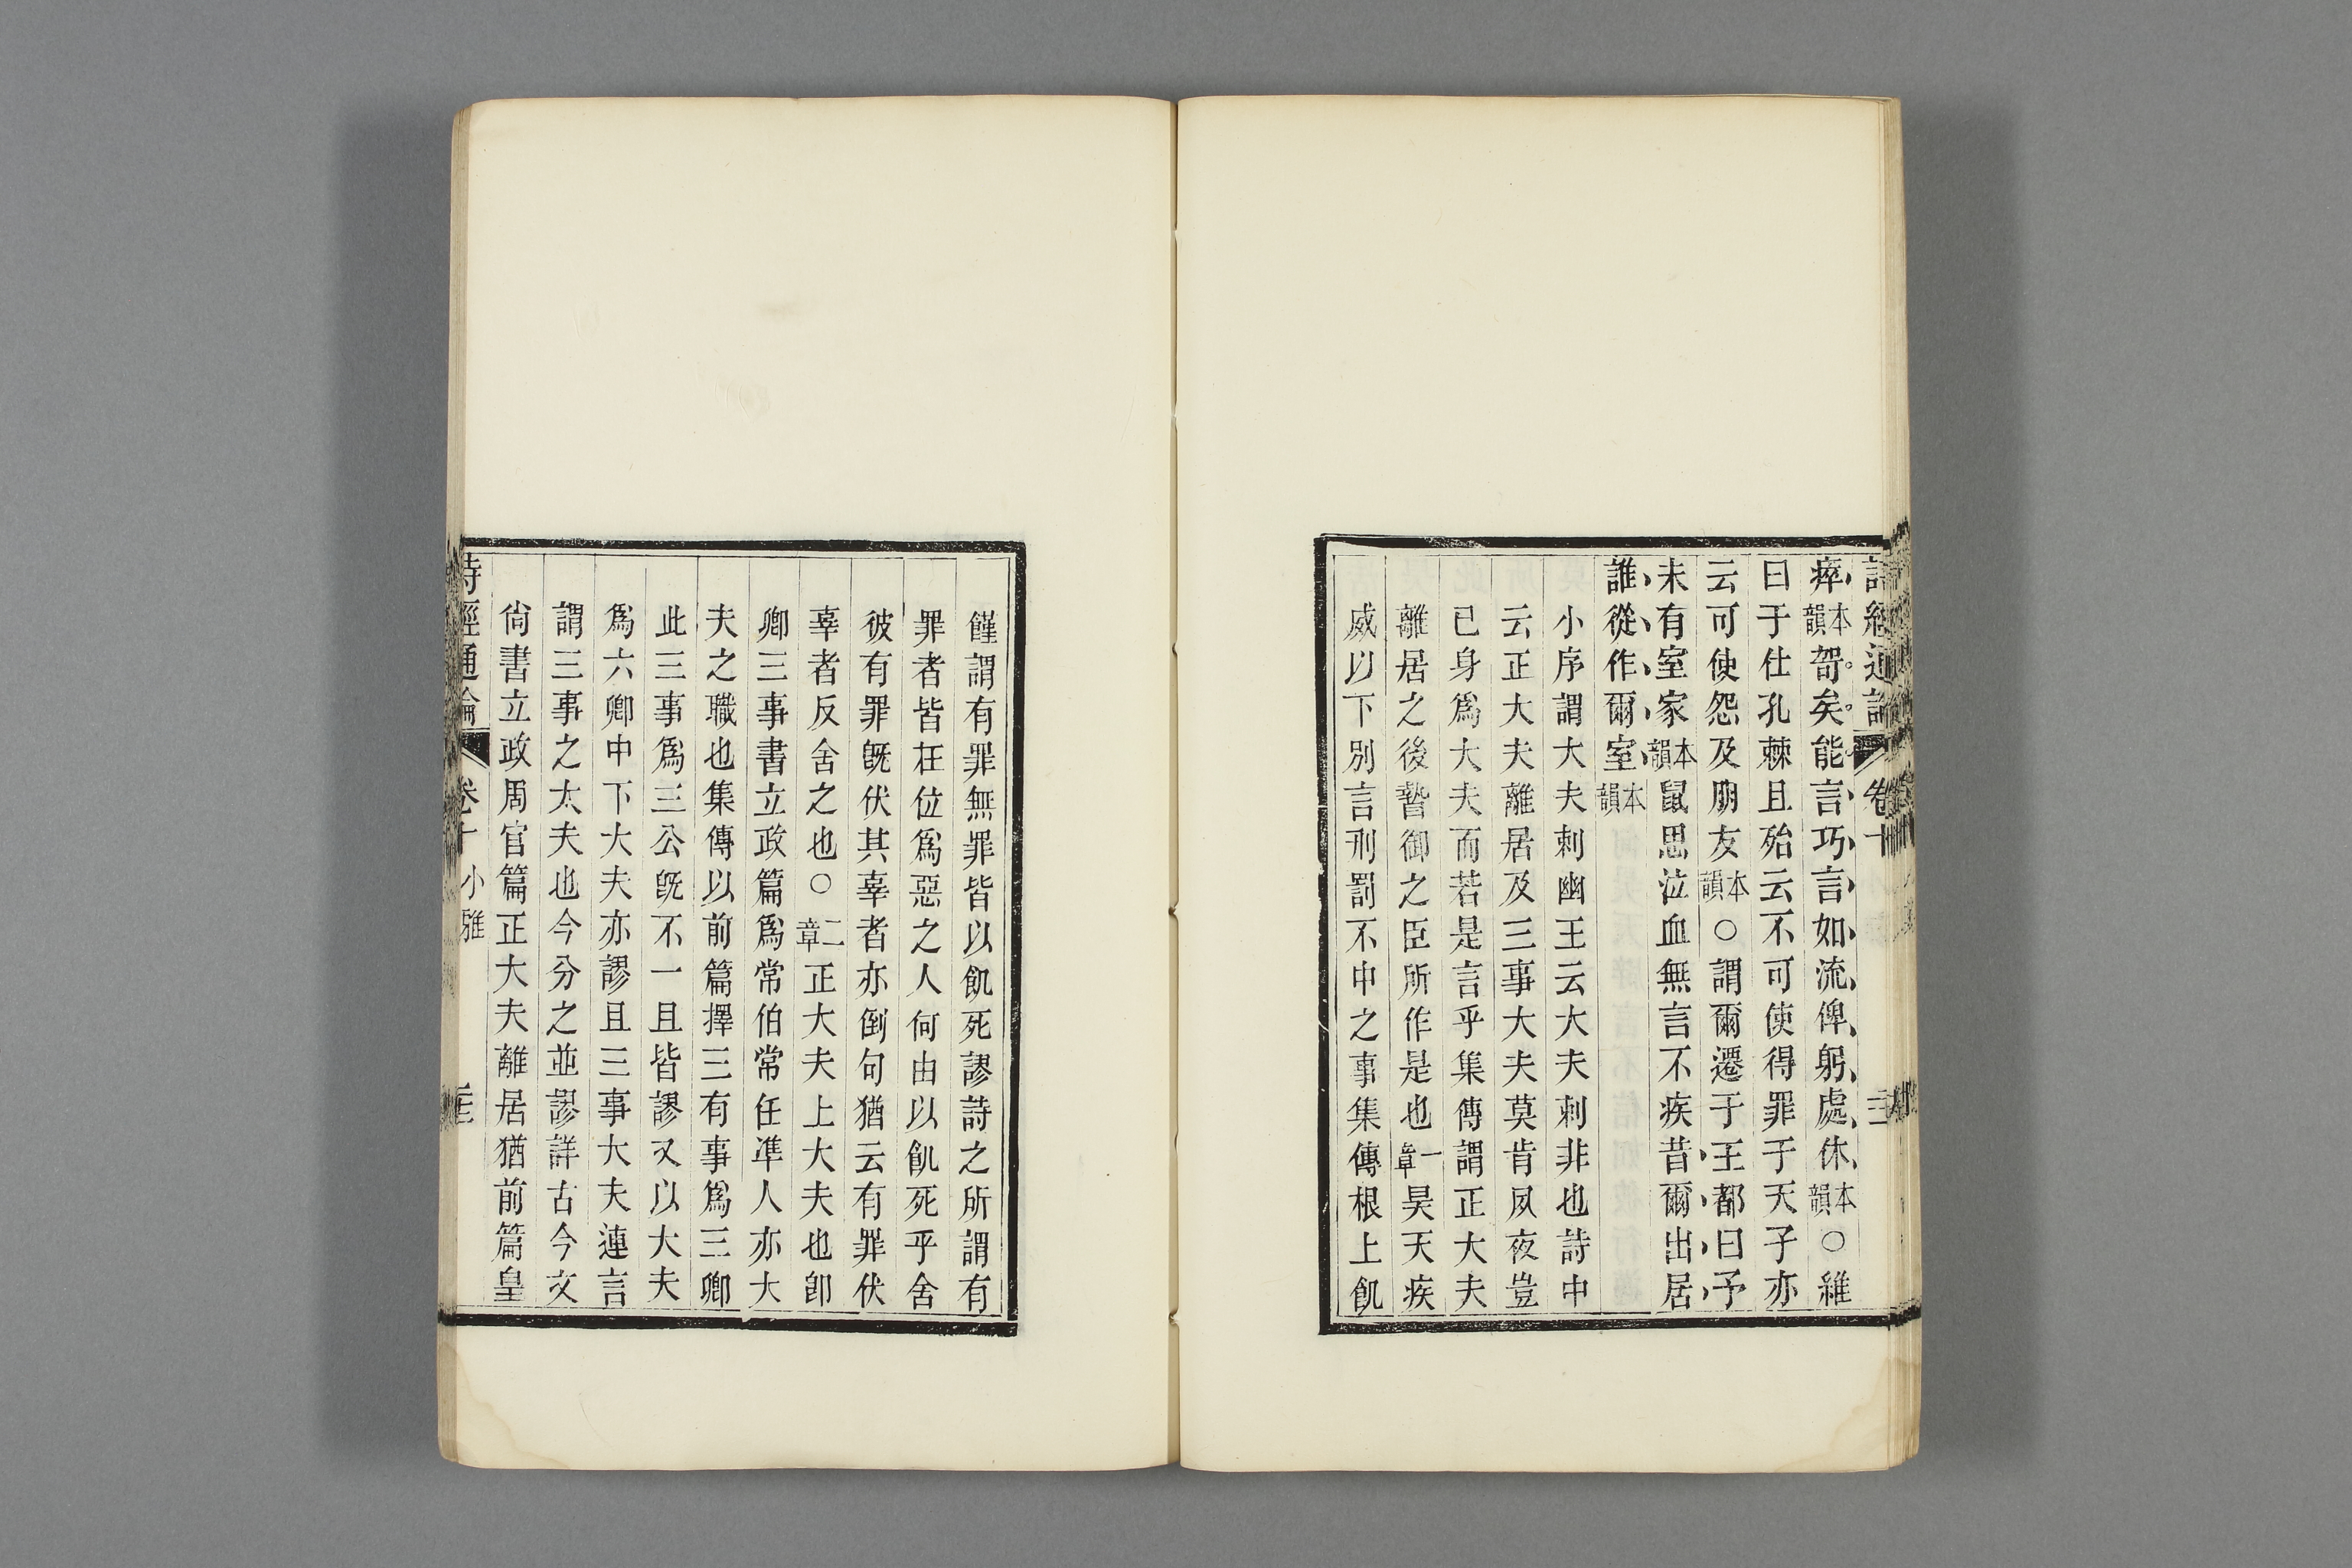 詩經通論 卷十
瘁本韻哿矣能言巧言如流俾躬處休本韻○維
曰于仕孔棘且殆云不可使得罪于天子亦
云可使怨及朋友本韻○謂爾遷于王都曰予
未有室家本韻鼠思泣血無言不疾昔爾出居
誰從作爾室本韻
小序謂大夫刺幽王云大夫刺非也詩中
云正大夫離居及三事大夫莫肯夙夜豈
已身爲大夫而若是言乎集傳謂正大夫
離居之後暬御之臣所作是也一章昊天疾
威以下別言刑罰不中之事集傳根上飢
饉謂有罪無罪皆以飢死謬詩之所謂有
罪者皆在位爲惡之人何由以飢死乎舍
彼有罪旣伏其辜者亦倒句猶云有罪伏
辜者反舍之也○二章正大夫上大夫也卽
卿三事書立政篇爲常伯常任準人亦大
夫之職也集傳以前篇擇三有事爲三卿
此三事爲三公旣不一且皆謬又以大夫
爲六卿中下大夫亦謬且三事大夫連言
謂三事之大夫也今分之並謬詳古今文
尙書立政周官篇正大夫離居猶前篇皇
詩經通論 卷十 小雅